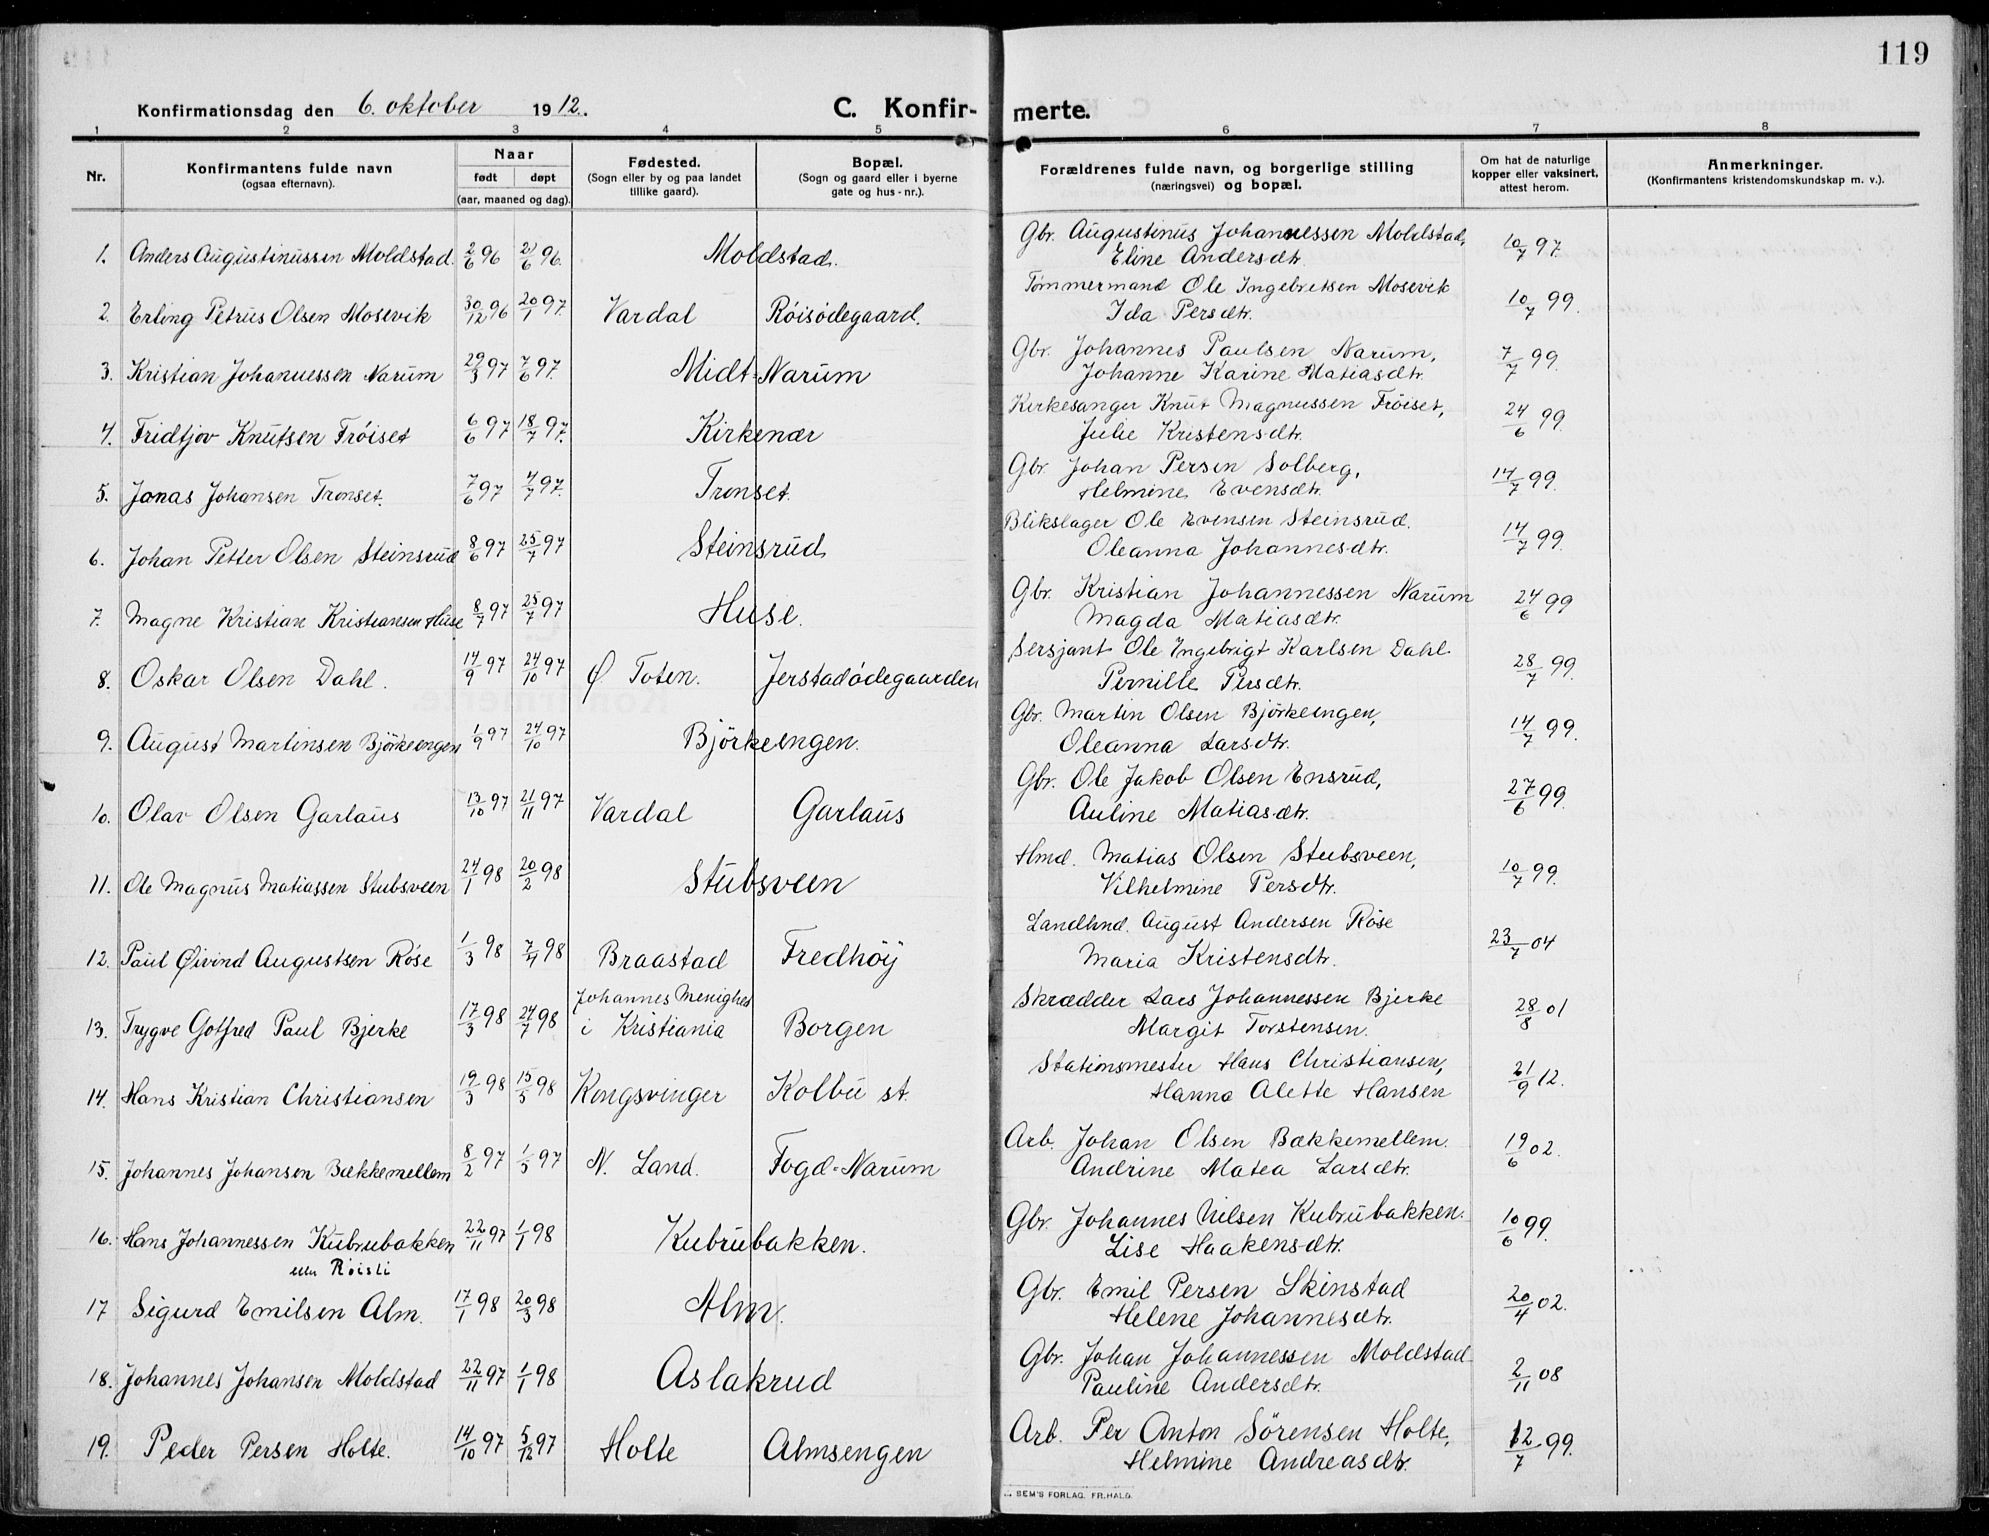 119
Konfirmationsdag den 6. oktober 1912. C. Konfir- merte.
1 2 3 4 5 6 7 8
Nr. Konfirmantens fulde navn (ogsaa efternavn). Naar født døpt (aar, maaned og dag). Fødested. (Sogn eller by og paa landet tillike gaard). Bopæl. (Sogn og gaard eller i byerne gate og hus-nr.). Forældrenes fulde navn, og borgerlige stilling (næringsvei) og bopæl. Om hat de naturlige kopper eller vaksinert, attest herom. Anmerkninger. (Konfirmantens kristendomskundskap m. v.).
1. Anders Augustinussen Moldstad. 2/6 96 21/6 96. Moldstad. Gbr. Augustinus Johannessen Moldstad, 10/7 97.
Eline Andersdtr.
2. Erling Petrus Olsen Mosevik 30/12 96 20/1 97. Vardal Røisødegaard. Tømmermand Ole Ingebretsen Mosevik 10/7 99.
Ida Persdtr.
3. Kristian Johannessen Narum 29/3 97 7/6 97. Midt-Narum Gbr. Johannes Paulsen Narum, 7/7 99.
Johanne Karine Matiasdtr.
4. Fridtjov Knutsen Frøiset 6/6 97 18/7 97. Kirkenær Kirkesanger Knut Magnussen Frøiset, 24/6 99.
Julie Kristensdtr.
5. Jonas Johansen Tronset. 7/6 97 4/7 97. Tronset. Gbr. Johan Persen Solberg, 14/7 99.
Helmine Evensdtr.
6. Johan Petter Olsen Steinsrud 8/6 97 25/7 97 Steinsrud Blikslager Ole Evensen Steinsrud. 14/7 99.
Oleanna Johannesdtr.
7. Magne Kristian Kristiansen Huse 8/7 97 25/7 97 Huse. Gbr. Kristian Johannessen Narum 24/6 99
Magda Matiasdtr.
8. Oskar Olsen Dahl. 14/9 97 24/10 97 Ø Toten. Jerstadødegaarden Sersjant Ole Ingebrigt Karlsen Dahl. 28/7 99.
Pernille Persdtr.
9. August Martinsen Bjørkeengen 1/9 97 24/10 97 Bjørkeengen. Gbr. Martin Olsen Bjørkeengen, 14/7 99.
Oleanna Larsdtr.
10. Olav Olsen Garlaus 13/10 97 21/11 97 Vardal Garlaus Gbr. Ole Jakob Olsen Ensrud, 27/6 99.
Auline Matiasdtr.
11. Ole Magnus Matiassen Stubsveen 24/1 98 20/2 98 Stubsveen Hmd. Matias Olsen Stubsveen, 10/7 99.
Vilhelmine Persdtr.
12. Paul Øivind Augustsen Røse 1/3 98 7/4 98 Braastad Fredhøy Landhnd. August Andersen Røse 23/7 04
Maria Kristensdtr.
13. Trygve Gotfred Paul Bjerke 17/3 98 24/7 98 Johannes Menighed i Kristiania Borgen Skrædder Lars Johannessen Bjerke 28/8 01
Margit Torstensen.
14. Hans Kristian Christiansen 19/3 98 15/5 98 Kongsvinger Kolbu st. Stationsmester Hans Christiansen, 21/9 12.
Hanna Alette Hansen
15. Johannes Johansen Bækkemellem 8/2 97 1/5 97 N. Land. Fogd-Narum Arb. Johan Olsen Bækkemellem. 19/6 02.
Andrine Matea Larsdtr.
16. Hans Johannessen Kubrubakken 22/11 97 1/1 98 Kubrubakken. Gbr. Johannes Nilsen Kubrubakken. 10/6 99.
eller Røisli Lise Haakensdtr.
17 Sigurd Emilsen Alm. 17/1 98 20/3 98 Alm. Gbr. Emil Persen Skinstad 20/4 02.
Helene Johannesdtr.
18. Johannes Johansen Moldstad 22/11 97 1/1 98 Aslakrud Gbr. Johan Johannessen Moldstad 2/11 08
Pauline Andersdtr.
19. Peder Persen Holte. 14/10 97 5/12 97 Holte Almsengen Arb. Per Anton Sørensen Holte, 12/7 99.
Helmine Andreasdtr.
SEM'S FORLAG. FR.HALD.